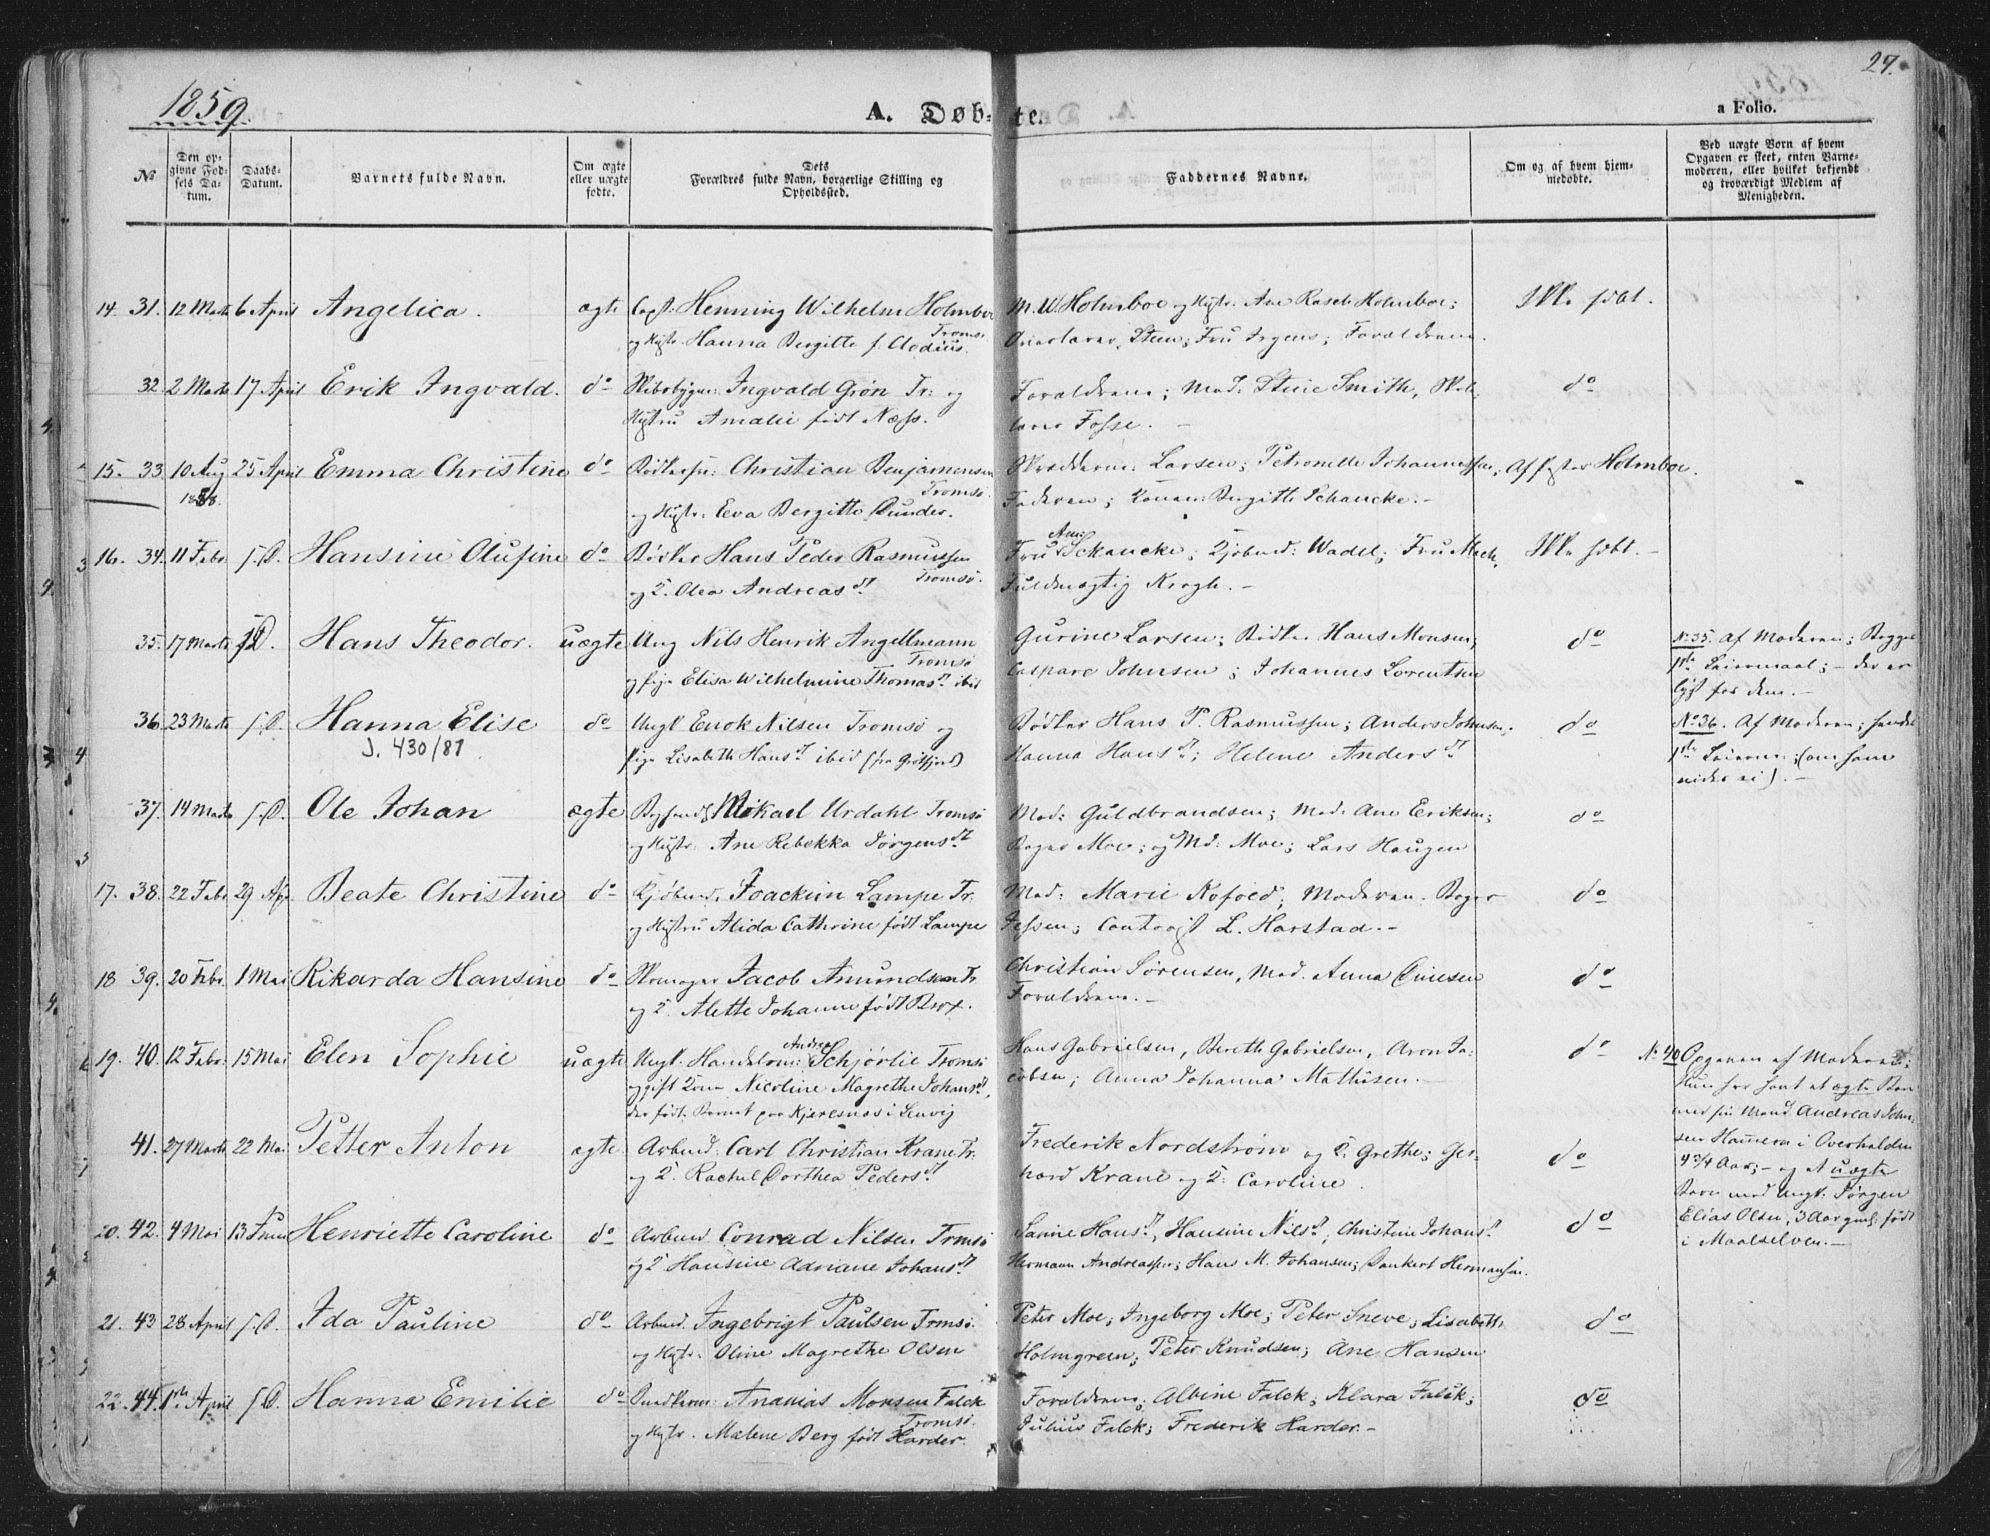 1859.
A. Døbte.
27.
a Folio.
No
Den opgivne Fødsels Datum.
Daabs-Datum.
Barnets fulde Navn.
Om ægte eller uægte fødte.
Dets Forældres fulde Navn, borgerlige Stilling og Opholdssted.
Faddernes Navne.
Om og af hvem hjemmedøbte.
Ved uægte Børn af hvem Opgaven er skeet, enten Barnemoderen, eller hvilket bekjendt og troværdigt Medlem af Menigheden.
14. 31. 12 Marts 6 April Angelica. ægte Capt. Henning Wilhelm Holmboe M. W. Holmboe og Hustr. Ane Rasch Holmboe; Ikke døbt.
og Hustr. Hanna Bergitte f. Clodius. Tromsø Steen; Fru Irgens; Forældrene.
32. 2 Marts 17 April Erik Ingvald. do Skibsbygm: Ingvald Grøn Tr: og Forældrene; Mad: Stine Smith, do
Hustru Amalie født Næss. Fosse. -
15. 33 10 Aug 25 April Emma Christine do Bødkersv: Christian Benjaminsen Larsen; Petronelle Johannessen, Af Holmboe.
1858. og Hustr: Eva Bergitte Dunder. Tromsø. Faderen; Konen: Birgitte Schancke. -
16. 34. 11 Febr. s. D. Hansine Olufine do Bødker Hans Peder Rasmussen Fru Schancke; Kjøbmd: Wadel; Fru Mack, Ikke døbt. -
og H. Olea Andreasdt Tromsø. Fuldmægtig Krogh. -
35. 17 Marts s. D. Hans Theodor. uægte Ung Nils Henrik Angellmann Gurine Larsen; Bødker Hans Monsen; do No 35. Af Moderen; Begges
og Pige Elisa Wilhelmine Thomasdt ibid Tromsø Caspare Johnsen; Johannes Lorentsen 1ste Leiermaal; - der er
lyst for dem. -
36. 23 Marts s. D. Hanna Elise do Ungk. Enok Nilsen Tromsø og Bødker Hans P. Rasmussen; Anders Johnsen. do No 36. Af Moderen; hendes
J. 430/81 Pige Lisabeth Hansdt ibid (fra Grøtfjord) Hanna Hansdt; Helene Andersdt 1ste Leierm:; (om hans
vides ei). -
37. 14 Marts s. D. Ole Johan ægte Mikael Urdahl Tromsø Mad: Guldbrandsen; Mad: Ane Eriksen; do
og Hustr. Ane Rebekka Jørgensdt Bager Moe; og Md: Moe; Lars Haugen
17. 38. 22 Febr 29 Apr. Beate Christine do Kjøbmd. Joackim Lampe Tr. Mad: Marie Kofoed; Moderen. Bager do
og Hustru Alida Cathrine født Lampe Jessen; L. Harstad. -
18 39. 20 Febr. 1 Mai Rikarda Hansine do Skomager Jacob Amundsen Tr Christian Sørensen, Mad. Anna do
og H. Alette Johanne født Brox. Forældrene. -
19. 40. 12 Febr. 15 Mai Elen Sophie uægte Ungk. Handelsm: Andreas Schjørlie Tromsø Hans Gabrielsen, Bereth Gabrielsen, Aron Ja- do No 40 Opgaven af Moderen;
og gift Kone Nicoline Magrethe Johansdt, cobsen; Anna Johanna Mathisen. - Hun har havt et ægte Barn
der født Barnet paa Kjeresnes i Lenvig med sin Mand Andreas John-
41. 27 Marts 22 Mai Petter Anton ægte Arbmd. Carl Christian Krane Tr. Frederik Nordstrøm og H. Grethe; Ger- do sen Hammera i Overhalden
og H. Rachel Dorthea Pedersdt hard Krane og H: Caroline. 4 3/4 Aar; - og et uægte
Barn med Ungk. Jørgen
20. 42. 4 Mai 13 Juni Henriette Caroline do Arbmd. Conrad Nilsen Tromsø Sarine Hansdt, Hansine Nilsdt, Christine Johansdt do Elias Olsen, 3 Aar gml. født
og H. Hansine Adriane Johansdt Hermann Andreassen; Hans M. Johansen; Dankert Hermansen. i Maalselven. -
21. 43 28 April s. D. Ida Pauline do Arbmd. Ingebrigt Paulsen Tromsø. Peter Moe; Ingeborg Moe; Peter Sneve; Lisabeth do
og Hstr. Oline Magrethe Olsen Holmgreen; Peter Knudsen; Ane Hansen
22. 44. 1ste April s. D. Hanna Emilie do Ananias Monsen Falck Forældrene; Albine Falck; Klara Falck; do
og Hstr. Malene Berg født Harder. Tromsø. Julius Falck; Frederik Harder. -